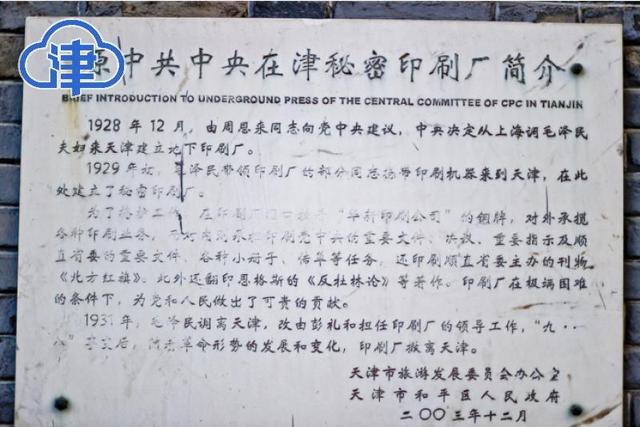 津
原中共中央在津秘密印刷厂简介
BRIEF INTRODUCTION TO UNDERGROUND PRESS OF THE CENTRAL COMMITTEE OF CPC IN TIANJIN
1928年12月，由周恩来同志向党中央建议，中央决定从上海调毛泽民
夫妇来天津建立地下印刷厂。
1929年初，毛泽民带领印刷厂的部分同志携带印刷机器来到天津，在此
处建立了秘密印刷厂。
为了掩护工作，在印刷厂门口挂着“华新印刷公司”的铜牌，对外承揽
各种印刷业务，而对内则承担印刷党中央的重要文件、决议、重要指示及顺
直省委的重要文件、各种小册子、传单等任务，还印刷顺直省委主办的刊物
《北方红旗》。此外还翻印恩格斯的《反杜林论》等著作。印刷厂在极端困难
的条件下，为党和人民做出了可贵的贡献。
1931年，毛泽民调离天津，改由彭礼和担任印刷厂的领导工作，“九·一
八”事变后，随着革命形势的发展和变化，印刷厂撤离天津。
天津市旅游发展委员会办公室
天津市和平区人民政府
二〇〇三年十二月